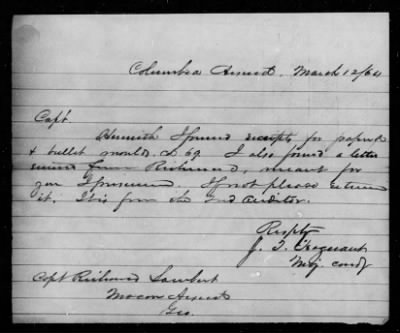 Columbia Arsenal. March 12/64
Capt.
Herewith I forward receipts for paper &
& bullet moulds. I also found a letter
from Richmond, meant for
you I presume. If not please return
it. It is from the 2nd Auditor.
Resptly
J. T. Trezevant
Maj. comdg
Capt Richard Lambert
Macon Arsenal
Geo.